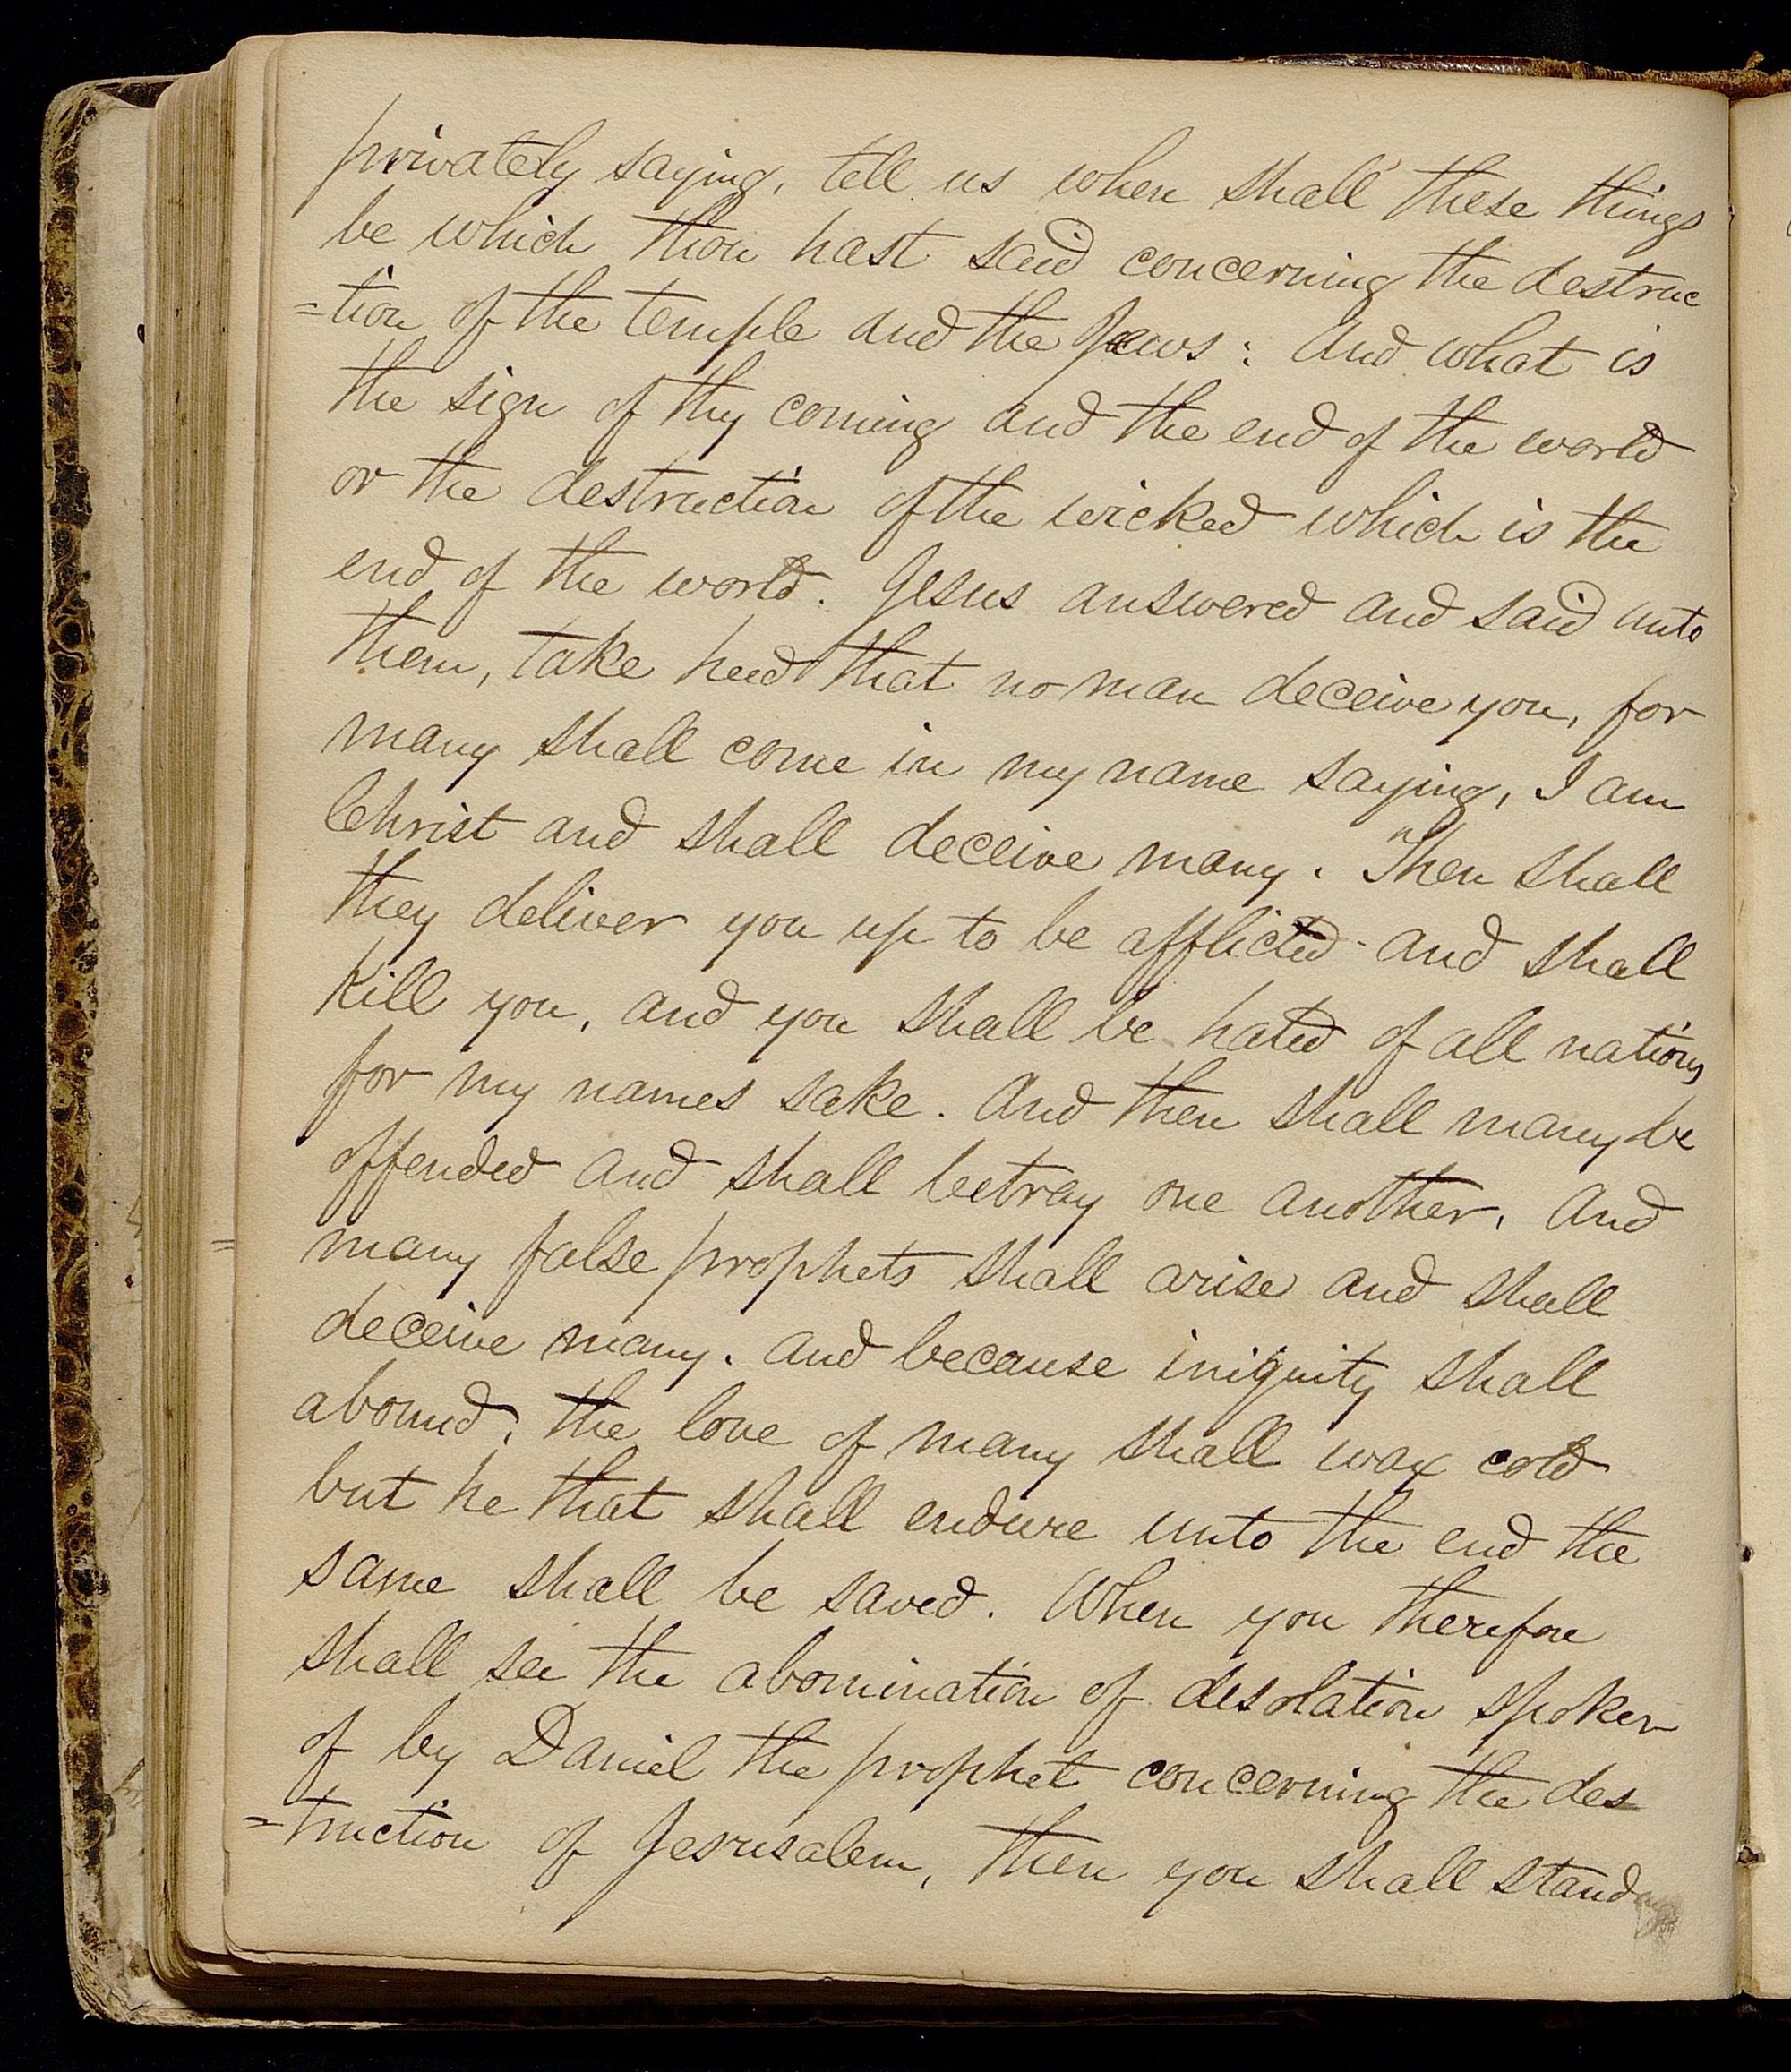 privately saying, tell us when shall these things
be which thou hast said concerning the destruc
=tion of the temple and the Jews: And what is
the sign of thy coming and the end of the world
or the destruction of the wicked which is the
end of the world. Jesus answered and said unto
them, take heed that no man deceive you, for
many shall come in my name saying, I am
Christ and shall deceive many. Then shall
they deliver you up to be afflicted and shall
kill you, and you shall be hated of all nations
for my names sake. And then shall many be
offended and shall betray one another, And
many false prophets shall arise and shall
deceive many. And because iniquity shall
abound, the love of many shall wax cold
but he that shall endure unto the end the
same shall be saved. When you therefore
shall see the abomination of desolation spoken
of by Daniel the prophet concerning the des
=truction of Jesrusalem, then you shall stand